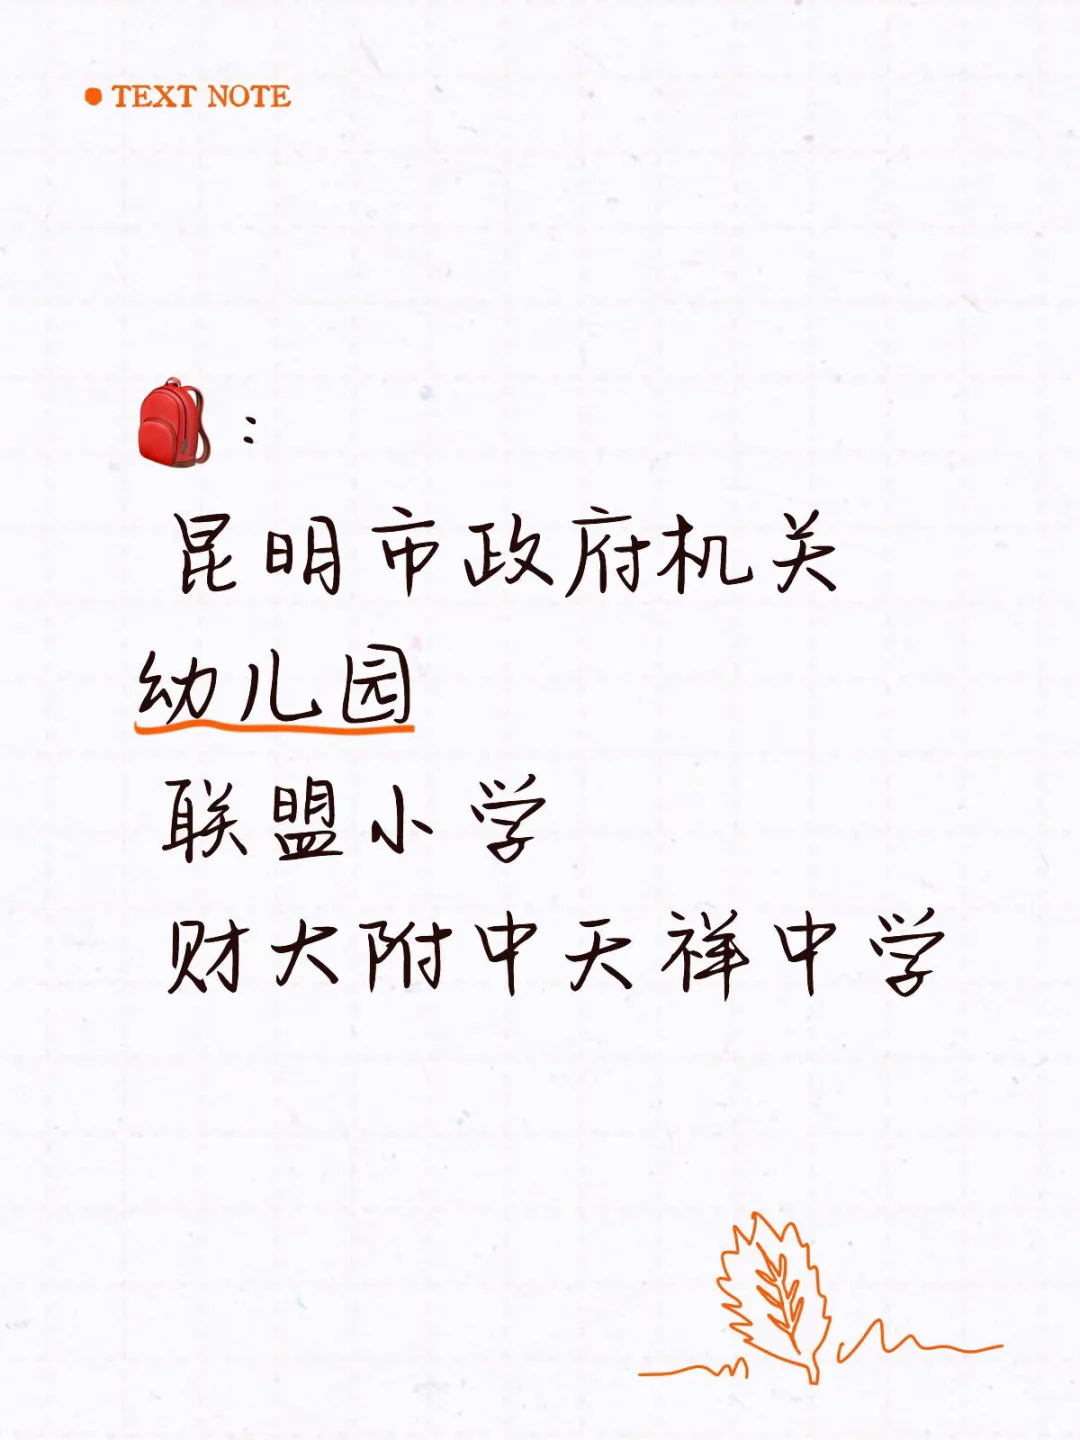 TEXT NOTE
:
昆明市政府机关
幼儿园
联盟小学
财大附中天祥中学